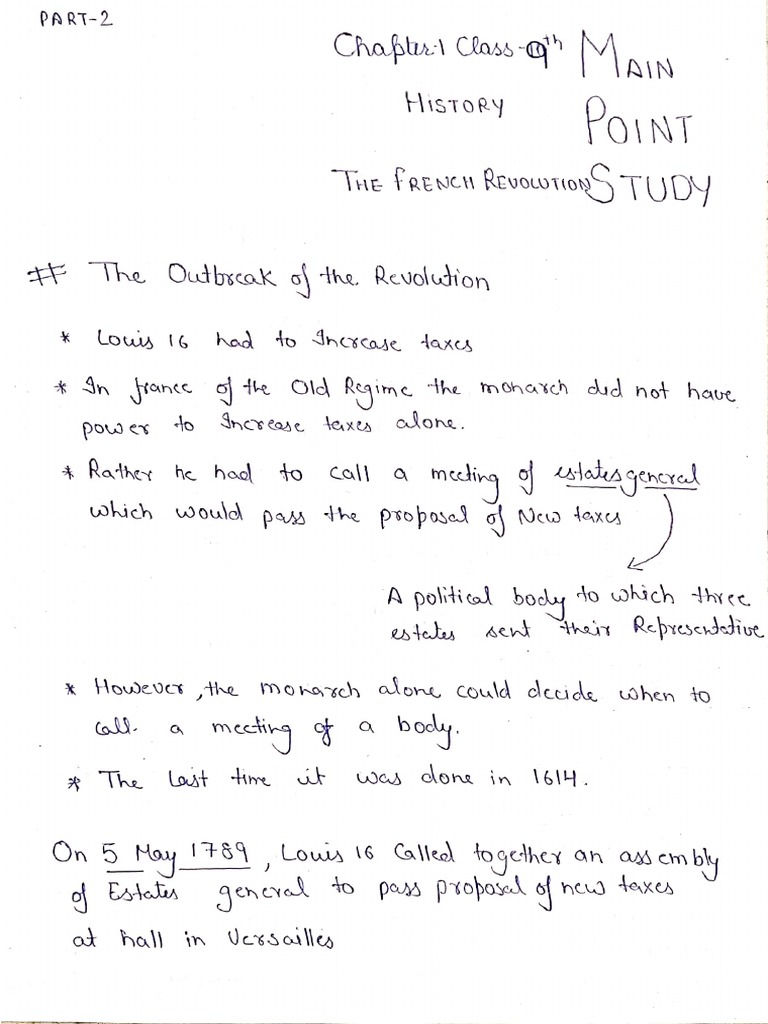 PART-2
Chapter.1 Class-9th MAIN
HISTORY POINT
THE FRENCH REVOLUTION STUDY
# The Outbreak of the Revolution
* Louis 16 had to Increase taxes
* In france of the Old Regime the monarch did not have
power to Increase taxes alone.
* Rather he had to call a meeting of estates general
which would pass the proposal of New taxes
A political body to which three
estates sent their Representative
* However, the monarch alone could decide when to
call a meeting of a body.
* The last time it was done in 1614.
On 5 May 1789, Louis 16 Called together an assembly
of Estates general to pass proposal of new taxes
at hall in Versailles